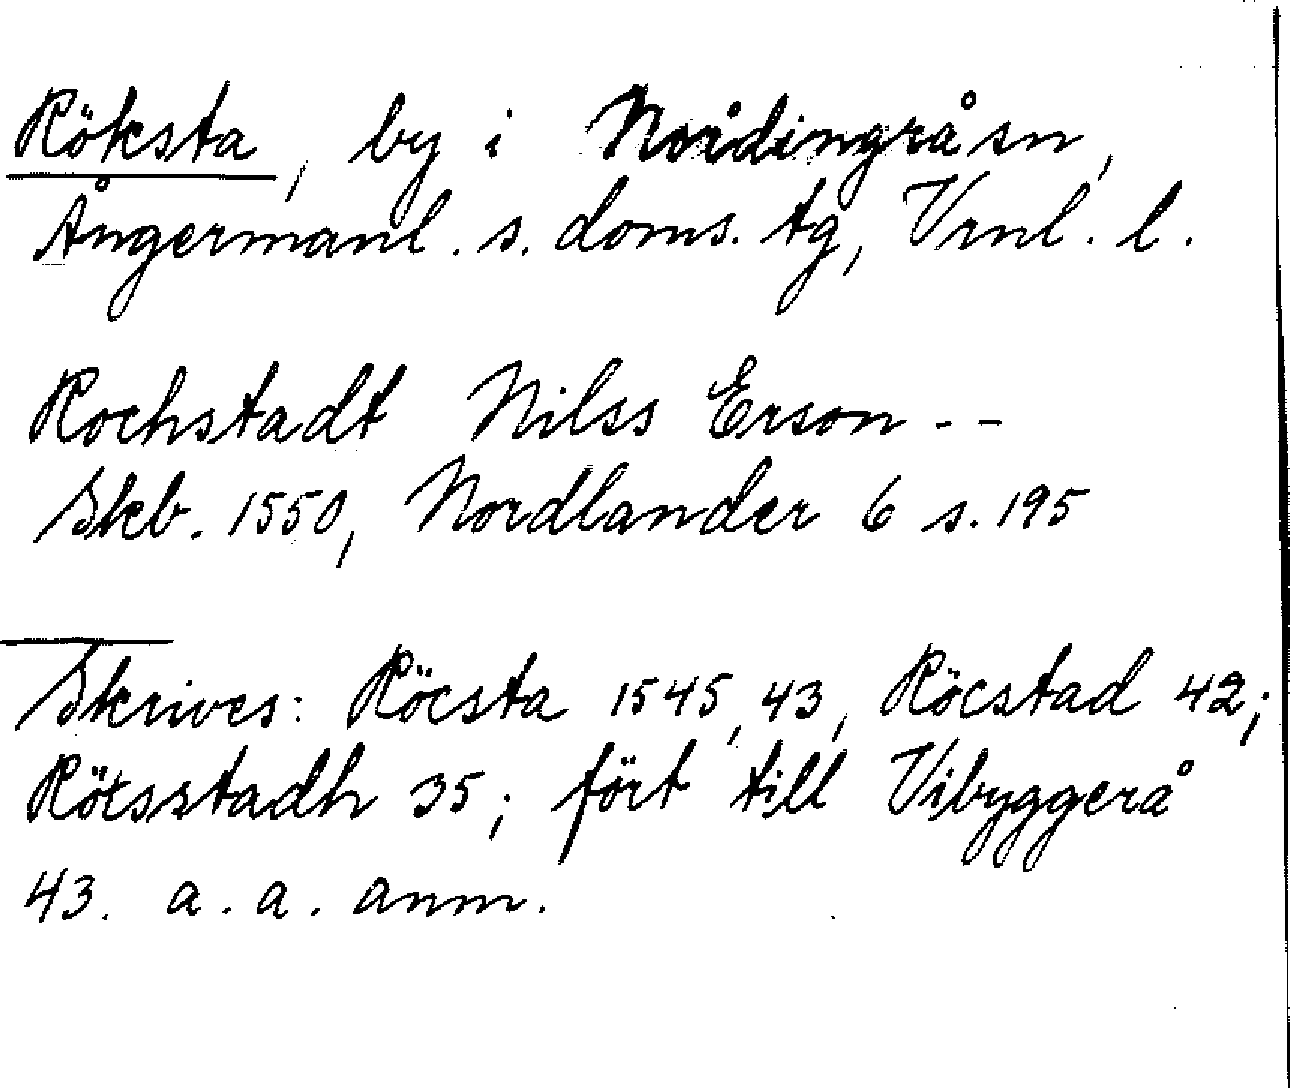 Röksta, by i Nordingrå sn,
Ångermanl. s. doms. tg, Vrnl. l.
Rochstadt Nilss Erson - -
Skb. 1550, Nordlander 6 s. 195
Skrives: Röcsta 1545, 43, Röcstad 42;
Rötsstadh 35; fört till Vibyggerå
43. a. a. anm.